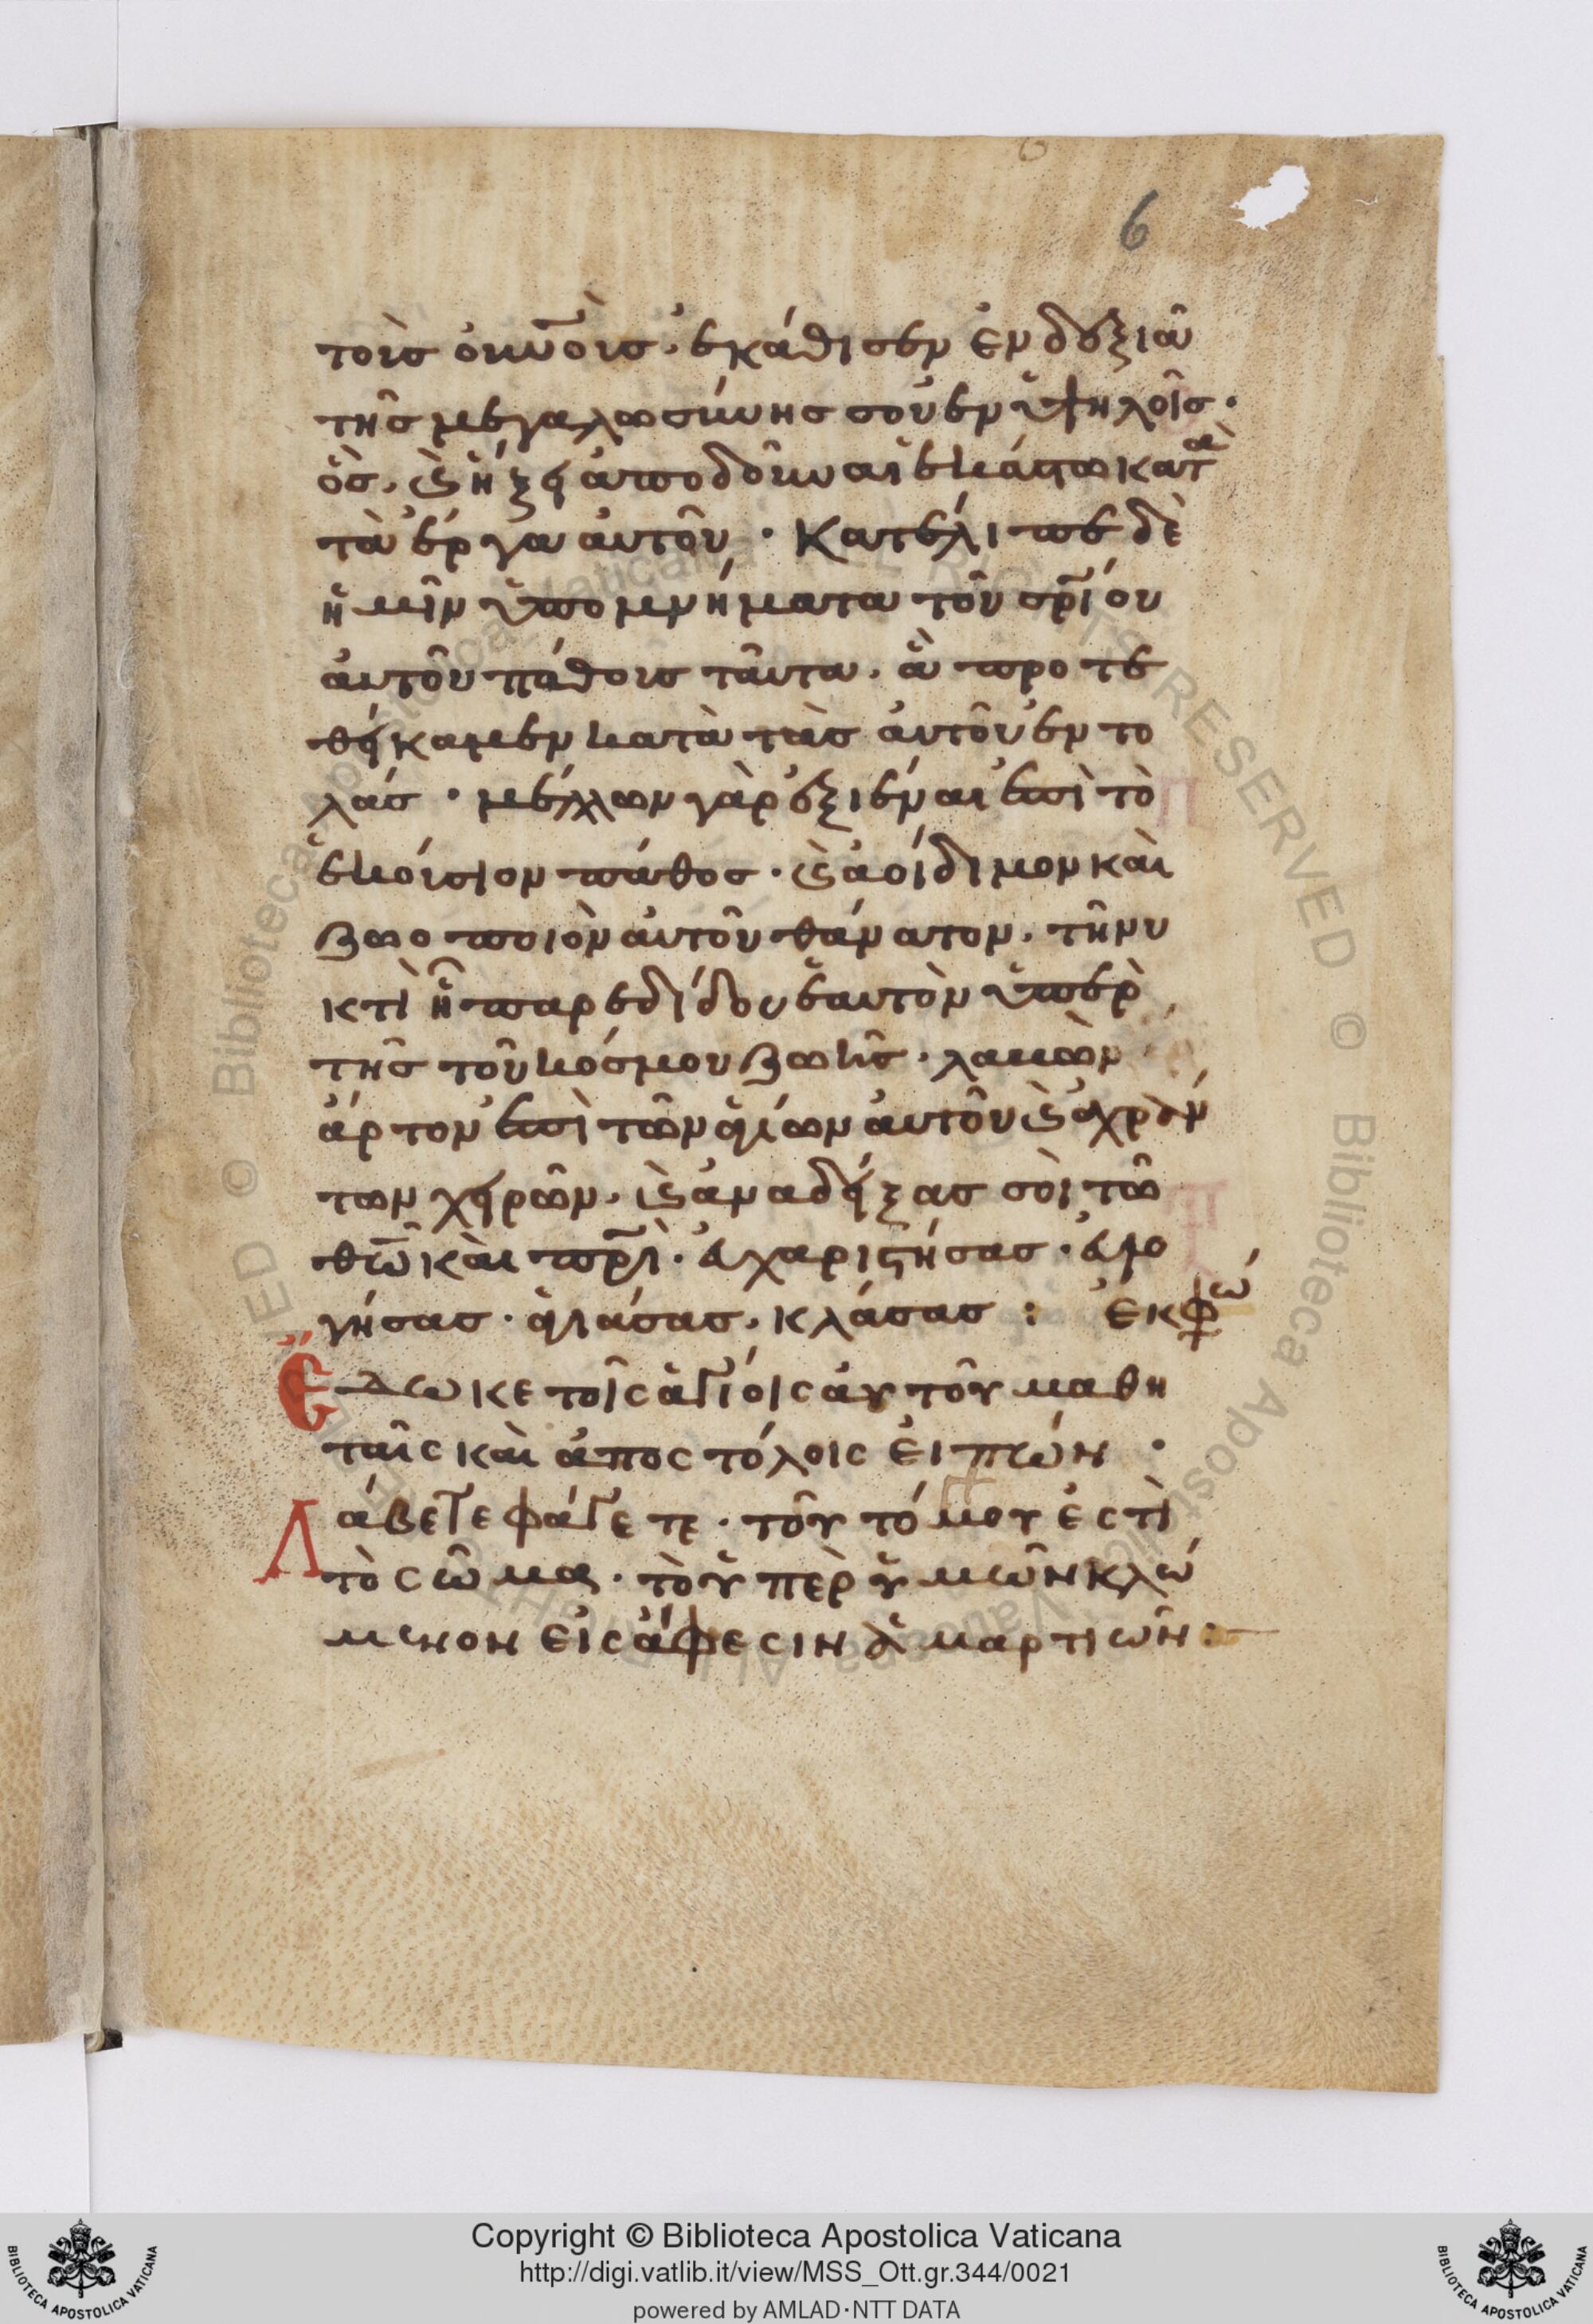 6
τοὺς οὐνοὺς· ἐκάθισεν ἐν δεξιᾶ
τῆς μεγαλωσύνης σου ἐν ὑψηλοῖς·
ὃς καὶ ἥξει ἀποδοῦναι ἑκάστω κατὰ
τὰ ἔργα αὐτοῦ· Κατέλιπε δὲ
ἡμῖν ὑπομνήματα τοῦ σρίου
αὐτοῦ πάθους ταῦτα· ἃ προτε
θείκαμεν κατὰ τὰς αὐτοῦ ἐντο
λάς· μέλλων γὰρ ἐξιέναι ἐπὶ τὸ
ἑκούσιον πάθος· καὶ ἀοίδιμον καὶ
ζωοποιὸν αὐτοῦ θάνατον· τῆ νυ
κτὶ ἧ παρεδίδου ἑαυτὸν ὑπὲρ
τῆς τοῦ κόσμου ζωῆς· λαβὼν
ἄρτον ἐπὶ τῶν ἁγίων αὐτοῦ καὶ ἀχράν
των χειρῶν· καὶ ἀναδείξας σοὶ τῶ
θῶ καὶ πρὶ· εὐχαριστήσας· εὐλο
γήσας· ἁγιάσας· κλάσας: ἐκφώ
Ἔδωκε τοῖς ἁγίοις αὐτοῦ μαθη
ταῖς καὶ ἀποστόλοις εἰπών·
Λάβετε φάγετε· τοῦτό μου ἐστὶ
τὸ σῶμα· τὸ ὑπὲρ ὑμῶν κλώ
μενον εἰς ἄφεσιν ἁμαρτιῶν:
Copyright © Biblioteca Apostolica Vaticana
http://digi.vatlib.it/view/MSS_Ott.gr.344/0021
powered by AMLAD·NTT DATA
BIBLIOTECA APOSTOLICA VATICANA
BIBLIOTECA APOSTOLICA VATICANA